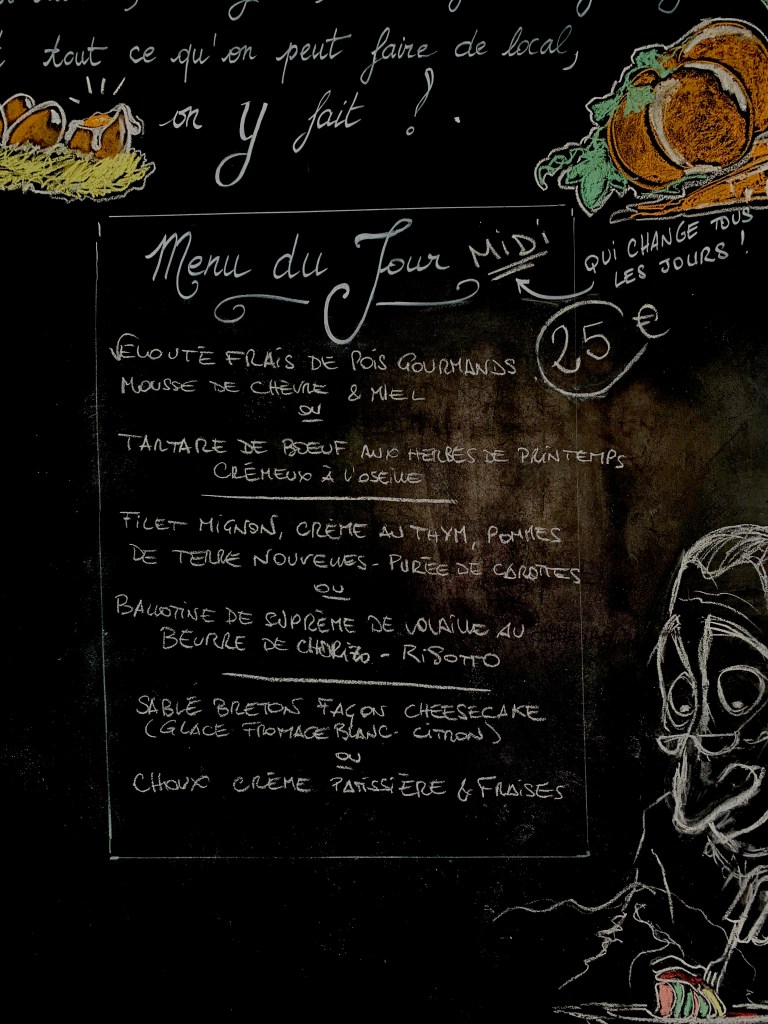 tout ce qu'on peut faire de local,
on y fait !.
Menu du Jour MIDI
QUI CHANGE TOUS
LES JOURS !
25 €
VELOUTÉ FRAIS DE POIS GOURMANDS
MOUSSE DE CHÈVRE & MIEL
OU
TARTARE DE BOEUF AUX HERBES DE PRINTEMPS
CRÉMEUX À L'OSEILLE
FILET MIGNON, CRÈME AU THYM, POMMES
DE TERRE NOUVELLES - PURÉE DE CAROTTES
OU
BALLOTINE DE SUPRÊME DE VOLAILLE AU
BEURRE DE CHORIZO - RISOTTO
SABLÉ BRETON FAÇON CHEESECAKE
(GLACE FROMAGE BLANC - CITRON)
OU
CHOUX CRÈME PATISSIÈRE & FRAISES